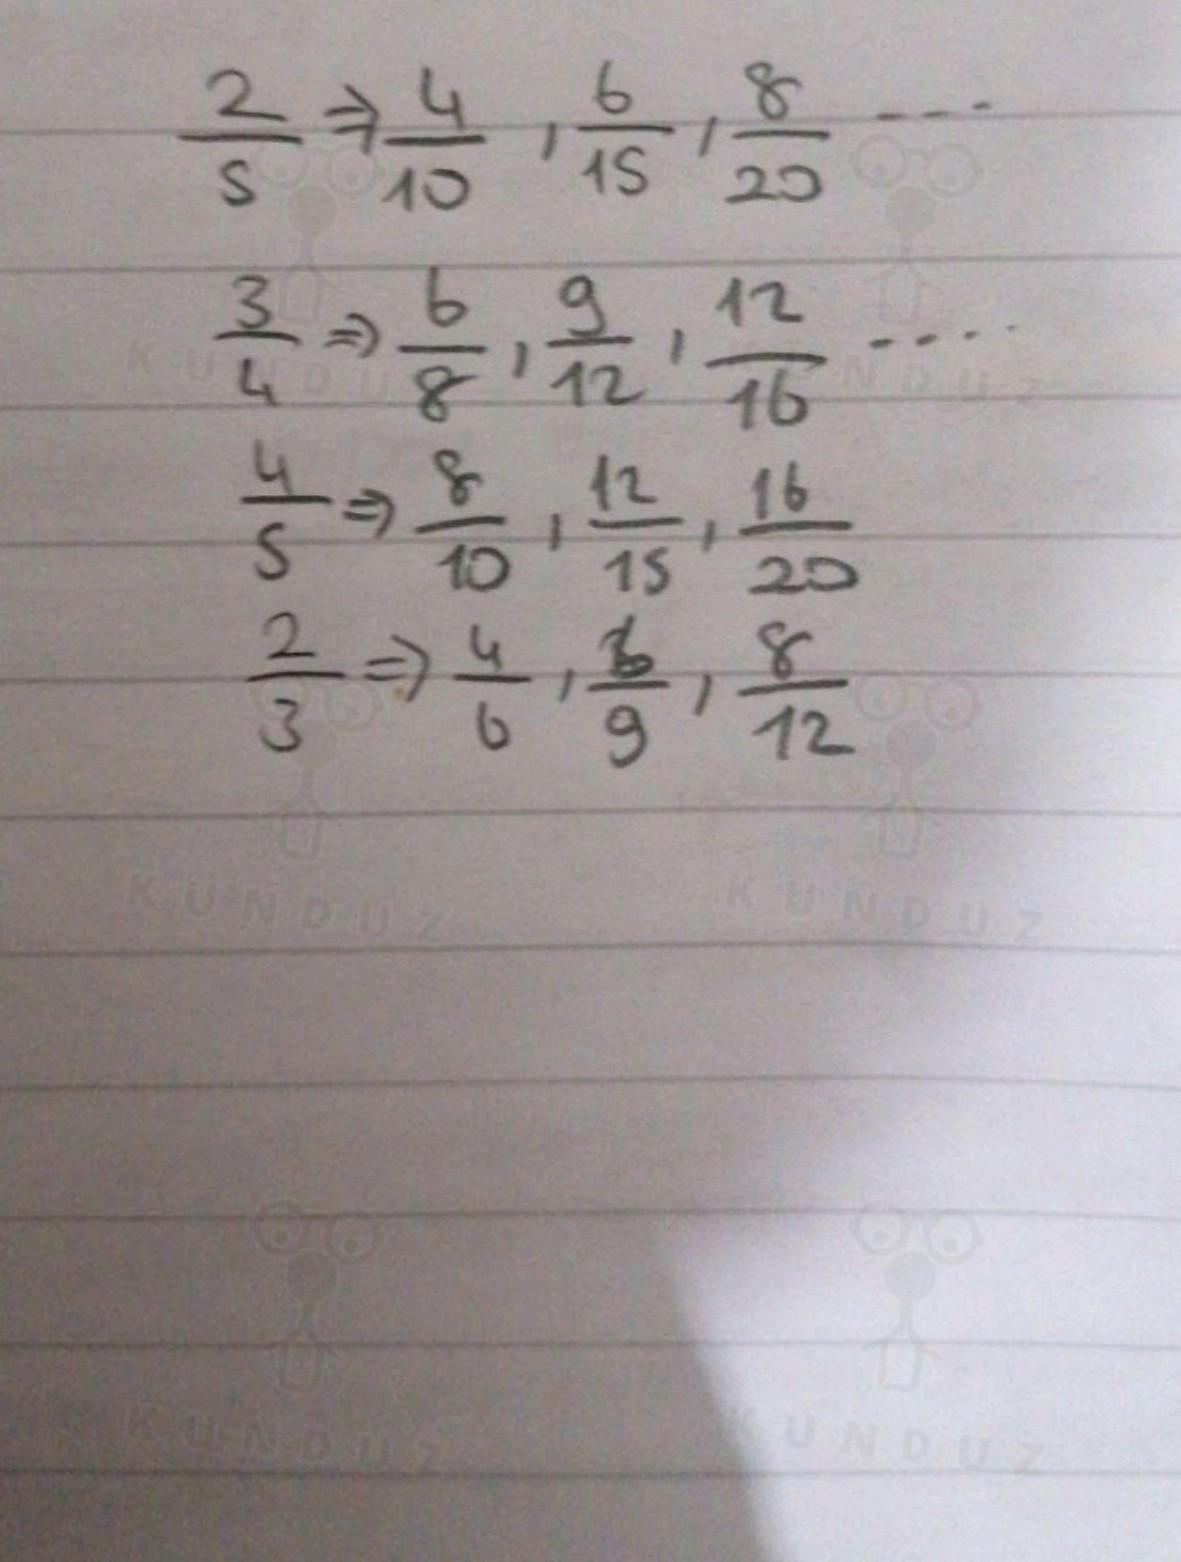 2/5 ⇒ 4/10 , 6/15 , 8/20 ---
3/4 ⇒ 6/8 , 9/12 , 12/16 ----
4/5 ⇒ 8/10 , 12/15 , 16/20
2/3 ⇒ 4/6 , 6/9 , 8/12
KUNDUZ KUNDUZ
KUNDUZ KUNDUZ
KUNDUZ KUNDUZ